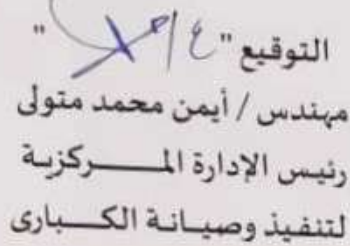 التوقيع " "
مهندس / أيمن محمد متولى
رئيس الإدارة المركزية
لتنفيذ وصيانة الكبارى